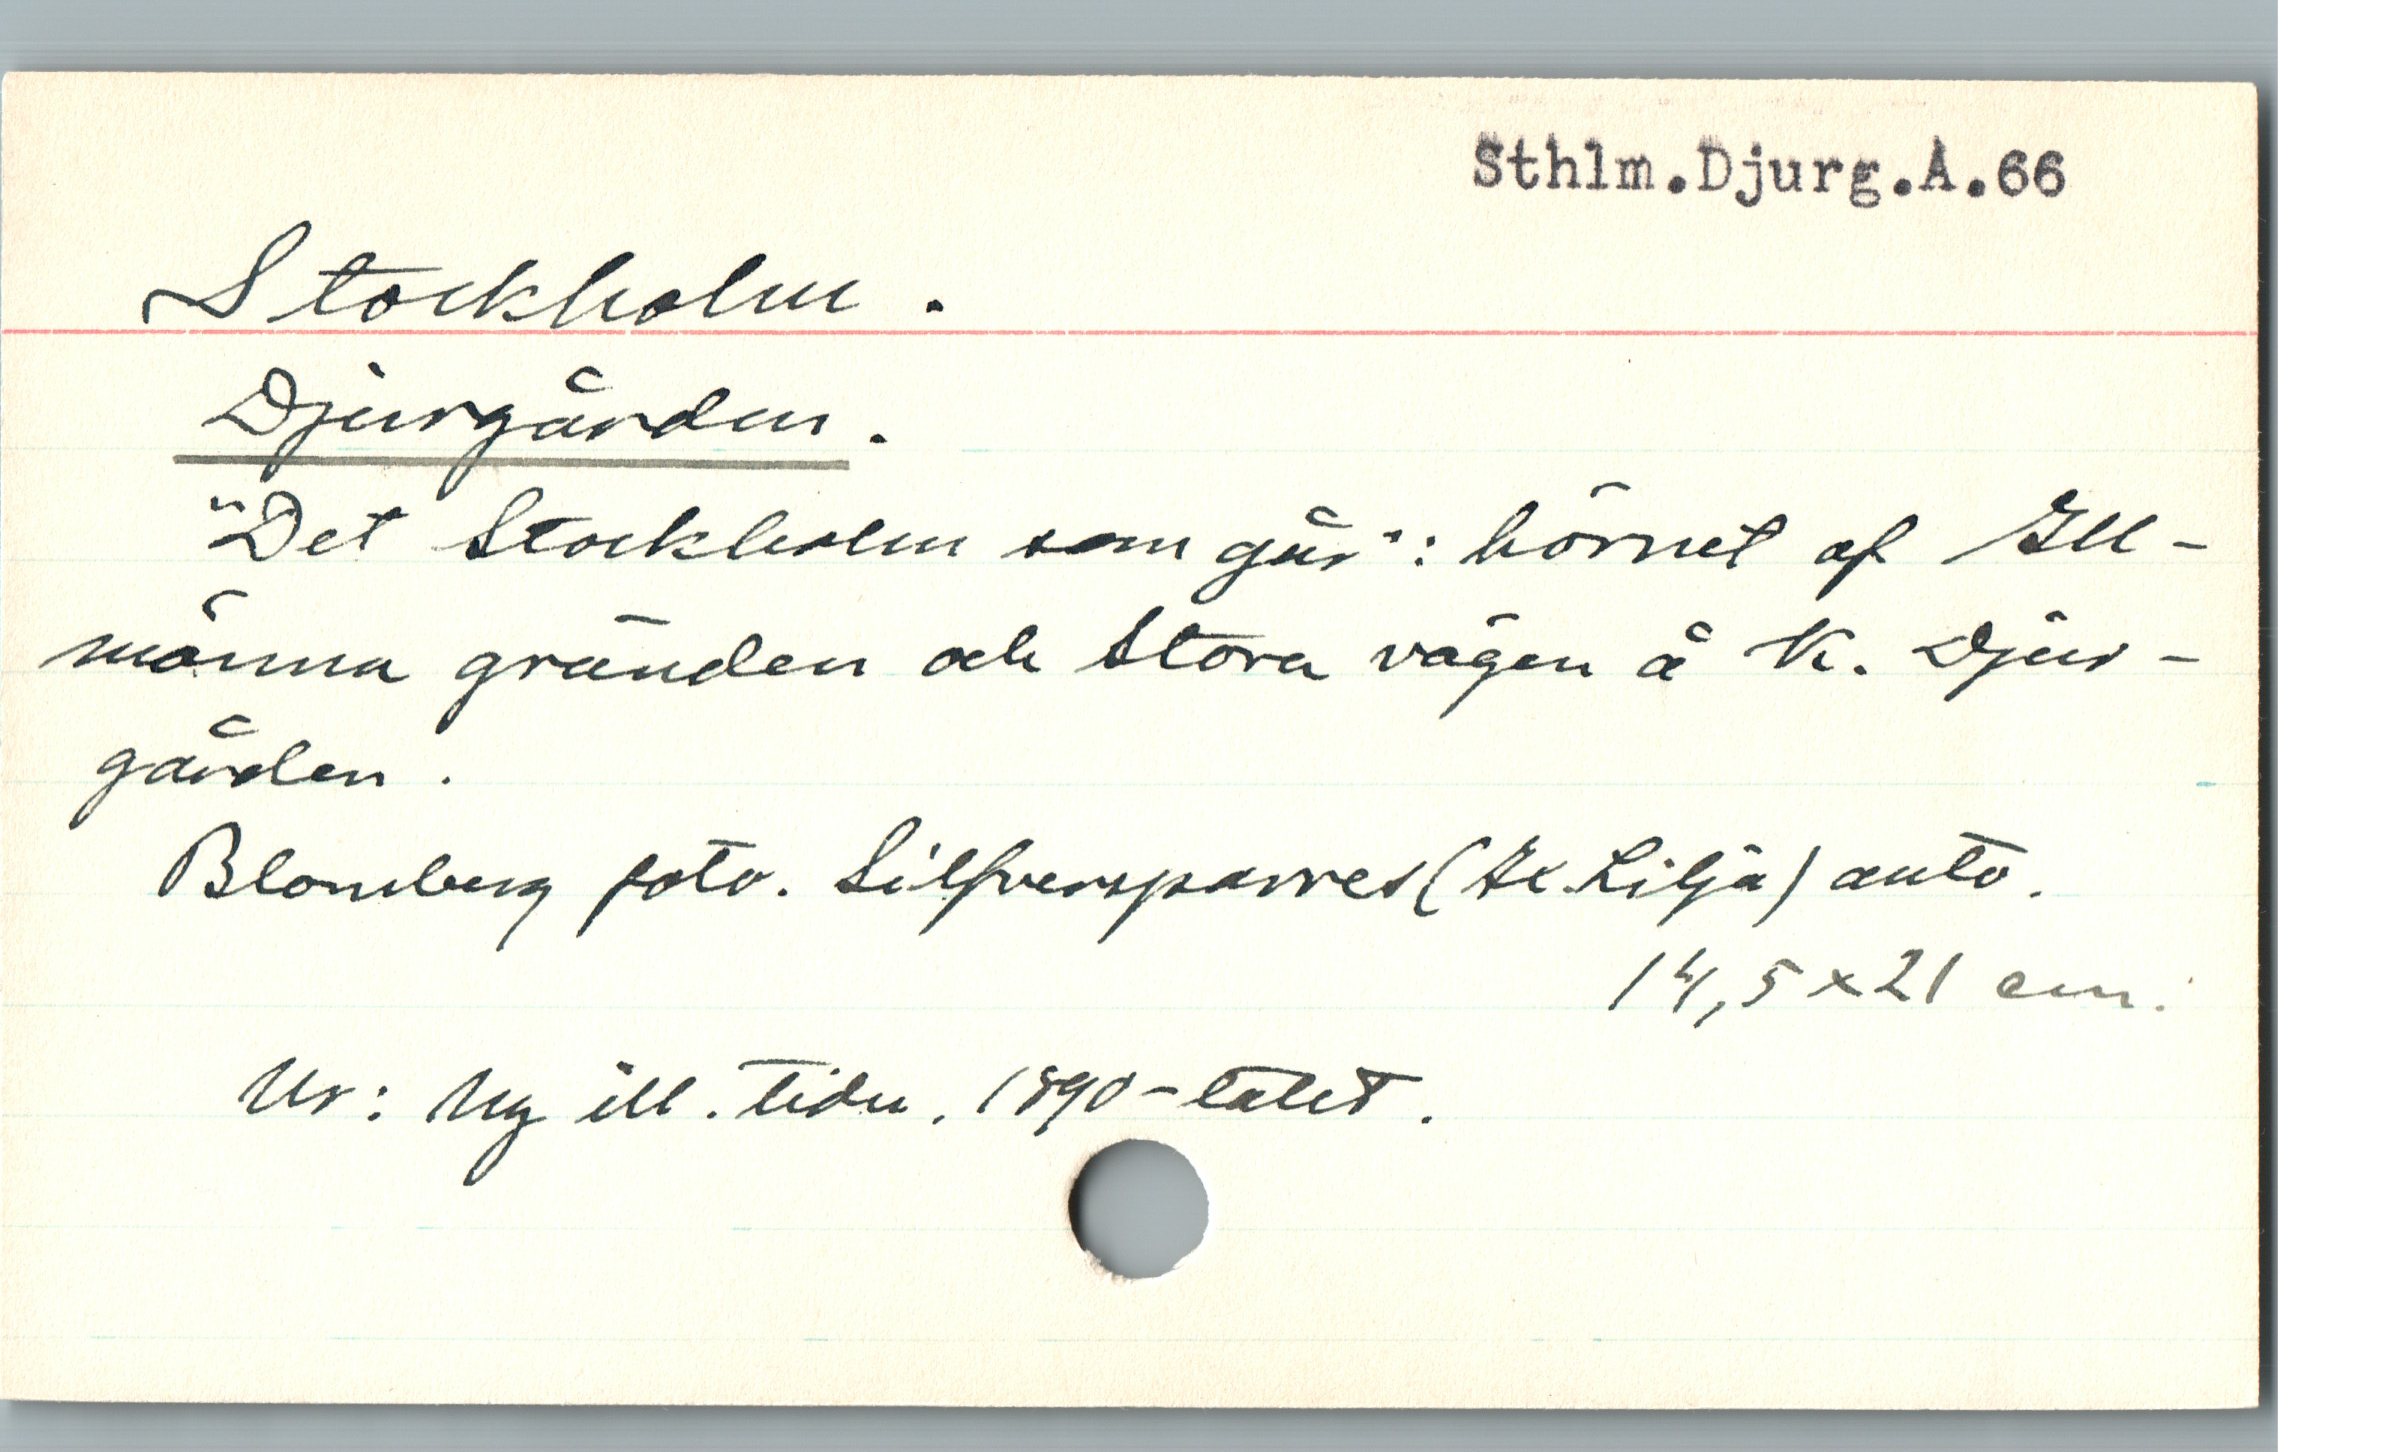 Sthlm.Djurg.A.66
Stockholm.
Djurgården.
"Det Stockholm som går": hörnet af All-
männa gränden och Stora vägen å K. Djur-
gården.
Blomberg foto. Silfversparres (Lilja) auto.
14,5 x 21 cm.
Ur: Ny ill. tidn. 1890-talet.